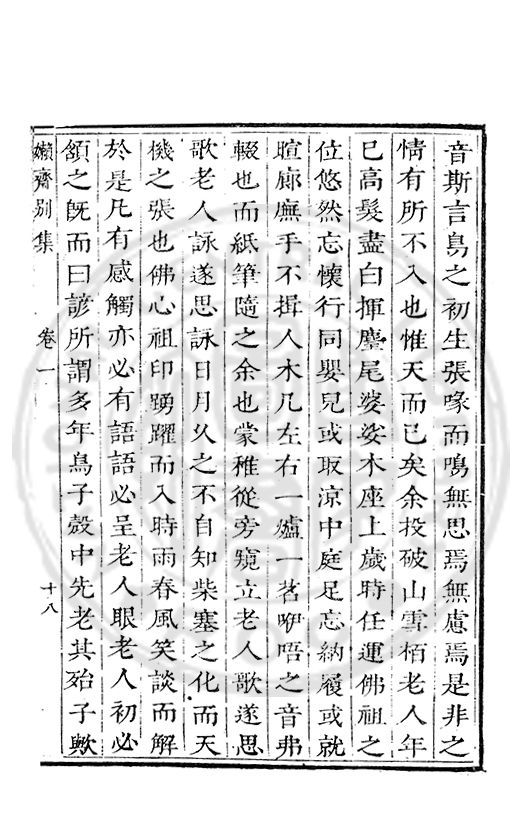 音斯言鳥之初生張喙而鳴無思焉無慮焉是非之
情有所不入也惟天而已矣余投破山雪栢老人年
已高髮盡白揮麈尾婆娑木座上歲時任運佛祖之
位悠然忘懷行同嬰兒或取涼中庭足忘納履或就
暄廊廡手不揖人木几左右一爐一茗咿唔之音弗
輟也而紙筆隨之余也蒙稚從旁窺立老人歌遂思
歌老人詠遂思詠日月久之不自知柴塞之化而天
機之張也佛心祖印踴躍而入時雨春風笑談而解
於是凡有感觸亦必有語語必呈老人眼老人初必
頷之旣而曰諺所謂多年鳥子殼中先老其殆子歟
嬾齋別集 卷一 十八